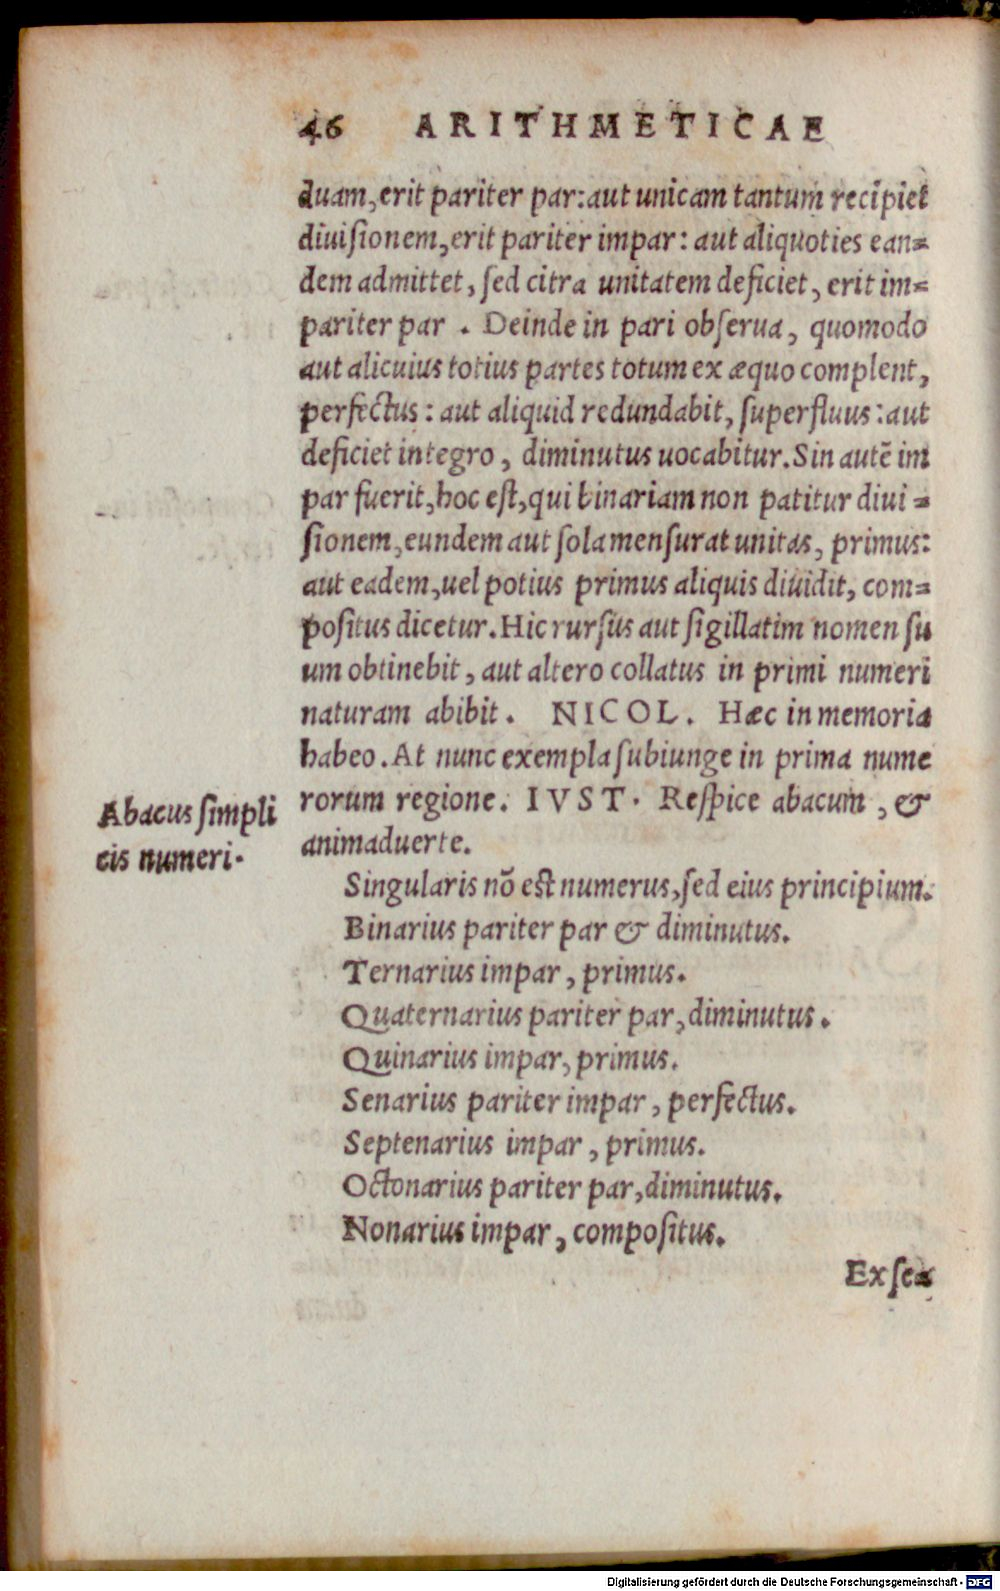 46 ARITHMETICAE
duam, erit pariter par: aut unicam tantum recipiet
diuisionem, erit pariter impar: aut aliquoties ean=
dem admittet, sed citra unitatem deficiet, erit im=
pariter par . Deinde in pari obserua, quomodo
aut alicuius totius partes totum ex æquo complent,
perfectus: aut aliquid redundabit, superfluus: aut
deficiet integro, diminutus uocabitur. Sin autē im
par fuerit, hoc est, qui binariam non patitur diui=
sionem, eundem aut sola mensurat unitas, primus:
aut eadem, uel potius primus aliquis diuidit, com=
positus dicetur. Hic rursus aut sigillatim nomen su
um obtinebit, aut altero collatus in primi numeri
naturam abibit. NICOL. Hæc in memoria
habeo. At nunc exempla subiunge in prima nume
rorum regione. IVST. Respice abacum, &
animaduerte.
Abacus simpli
cis numeri.
Singularis nō est numerus, sed eius principium.
Binarius pariter par & diminutus.
Ternarius impar, primus.
Quaternarius pariter par, diminutus.
Quinarius impar, primus.
Senarius pariter impar, perfectus.
Septenarius impar, primus.
Octonarius pariter par, diminutus.
Nonarius impar, compositus.
Ex se=
Digitalisierung gefördert durch die Deutsche Forschungsgemeinschaft - DFG